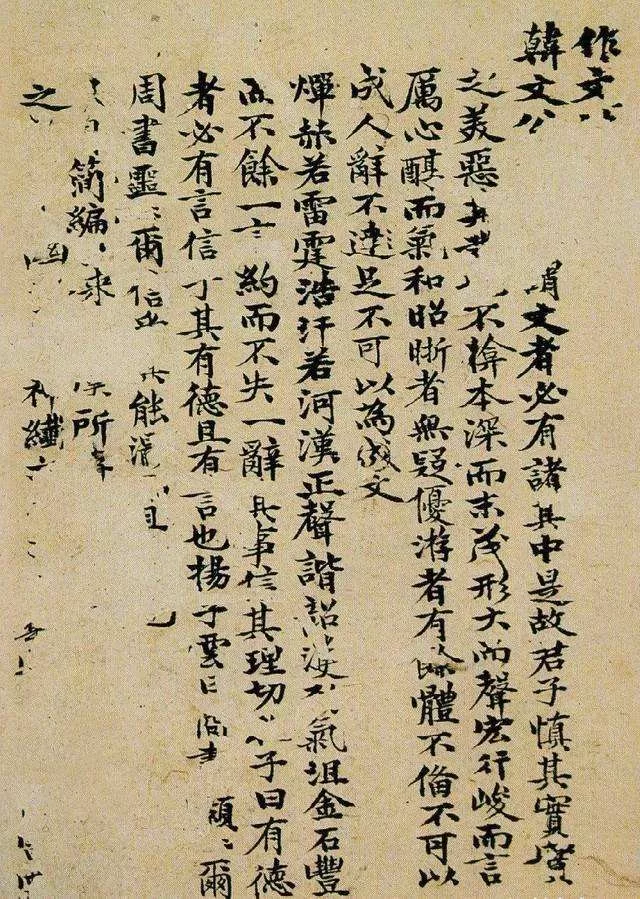 作文
韓文公 謂文者必有諸其中是故君子慎其實
之美惡其 不揜本深而末茂形大而聲宏行峻而言
厲心醇而氣和昭晰者無疑優游者有餘體不備不可以
成人辭不達足不可以為成文
燀赫若雷霆浩汗若河漢正聲諧韶濩 氣沮金石豐
而不餘一言約而不失一辭其事信其理切 子曰有德
者必有言信乎其有德且有言也揚子雲曰 爾
周書噩〻爾信 能 且
簡編 來 所
之 繼